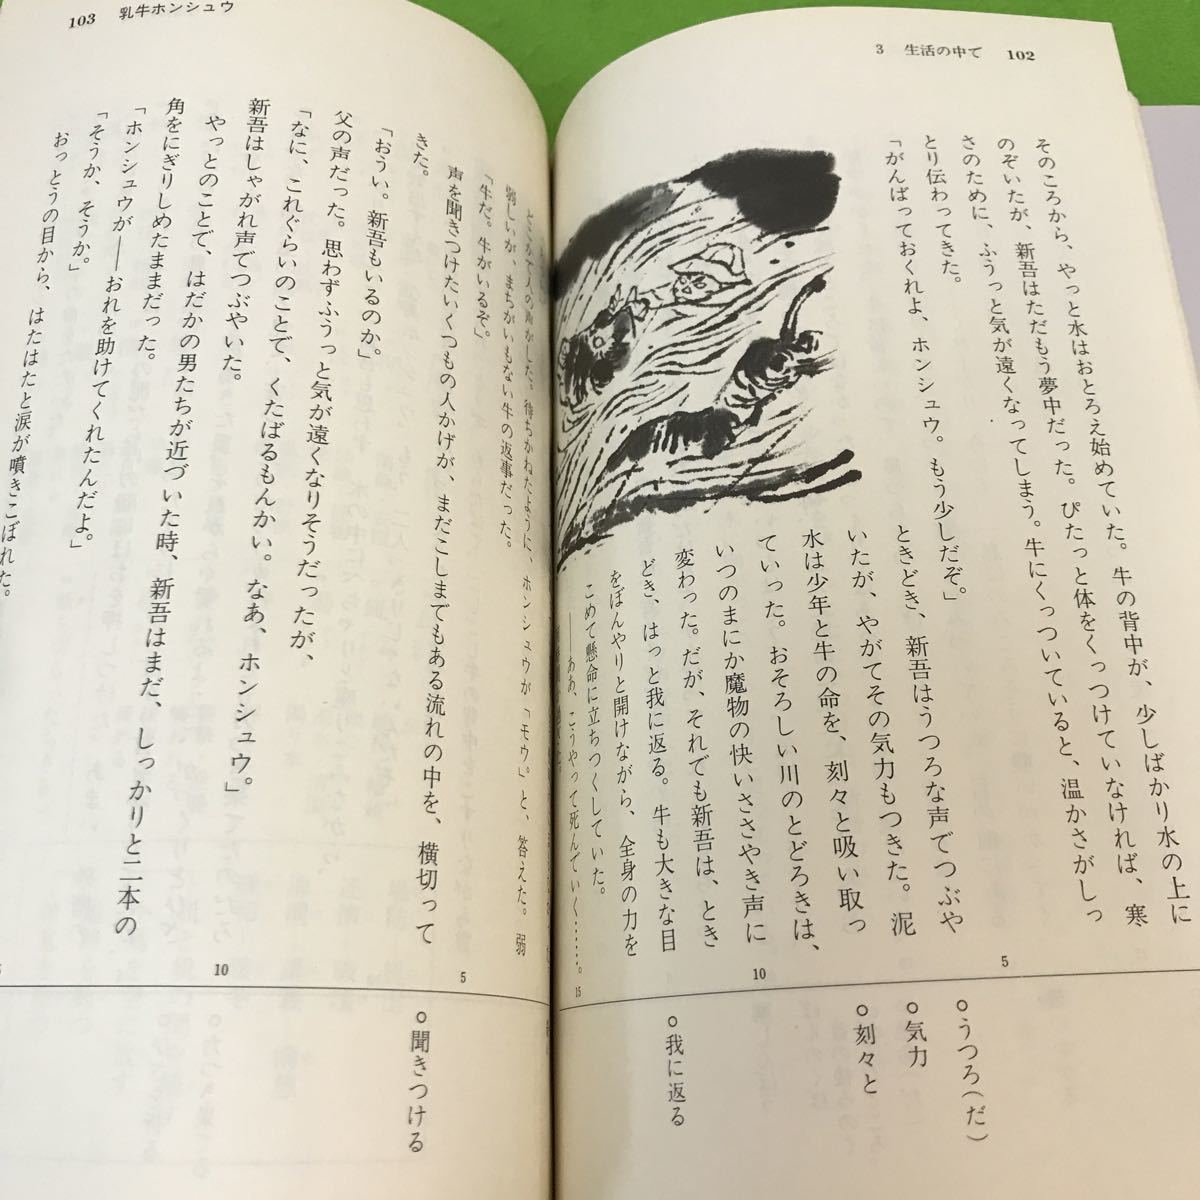 3 生活の中で 102
そのころから、やっと水はおとろえ始めていた。牛の背中が、少しばかり水の上に
のぞいたが、新吾はただもう夢中だった。ぴたっと体をくっつけていなければ、寒
さのために、ふうっと気が遠くなってしまう。牛にくっついていると、温かさがしっ
とり伝わってきた。
「がんばっておくれよ、ホンシュウ。もう少しだぞ。」
ときどき、新吾はうつろな声でつぶや
いたが、やがてその気力もつきた。泥
水は少年と牛の命を、刻々と吸い取っ
ていった。おそろしい川のとどろきは、
いつのまにか魔物の快いささやき声に
変わった。だが、それでも新吾は、とき
どき、はっと我に返る。牛も大きな目
をぼんやりと開けながら、全身の力を
こめて懸命に立ちつくしていた。
——ああ、こうやって死んでいく……。
5
10
15
○うつろ(だ)
○気力
○刻々と
○我に返る
103 乳牛ホンシュウ
どこかで人の声がした。待ちかねたように、ホンシュウが「モウ。」と、答えた。弱
弱しいが、まちがいもない牛の返事だった。
「牛だ。牛がいるぞ。」
声を聞きつけたいくつもの人かげが、まだこしまでもある流れの中を、横切って
きた。
「おうい。新吾もいるのか。」
父の声だった。思わずふうっと気が遠くなりそうだったが、
「なに、これぐらいのことで、くたばるもんかい。なあ、ホンシュウ。」
新吾はしゃがれ声でつぶやいた。
やっとのことで、はだかの男たちが近づいた時、新吾はまだ、しっかりと二本の
角をにぎりしめたままだった。
「ホンシュウが——おれを助けてくれたんだよ。」
「そうか、そうか。」
おっとうの目から、はたはたと涙が噴きこぼれた。
5
10
○聞きつける